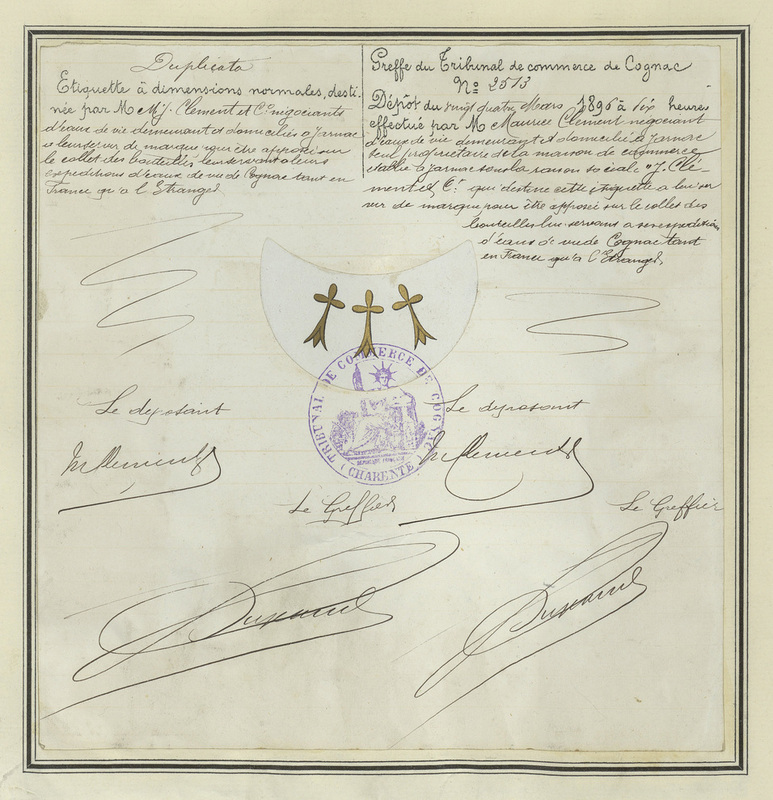 Duplicata
Etiquette à dimensions normales, desti-
née par M M J. Clement et Cie négociants
d'eaux de vie demeurant et domiciliés à Jarnac
a leur servir de marque qui être apposé sur
le collet des bouteilles leur servant a leurs
expéditions d'eaux de vie de Cognac tant en
France qu'a l'Etranger
Greffe du Tribunal de commerce de Cognac
No 2513
Dépôt du vingt quatre Mars 1896 à dix heures
effectué par M Maurice Clement négociant
d'eaux de vie demeurant et domicilié à Jarnac
seul propriétaire de la maison de commerce
établie à Jarnac sous la raison sociale "J. Clé-
ment et Cie qui destine cette étiquette a leur ser
vir de marque pour être apposé sur le collet des
bouteilles lui servant a ses expéditions
d'eaux de vie de Cognac tant
en France qu'a l'Etranger
TRIBUNAL DE COMMERCE DE COGNAC
(CHARENTE)
Le déposant
Le déposant
M Clement
M Clement
Le Greffier
Le Greffier